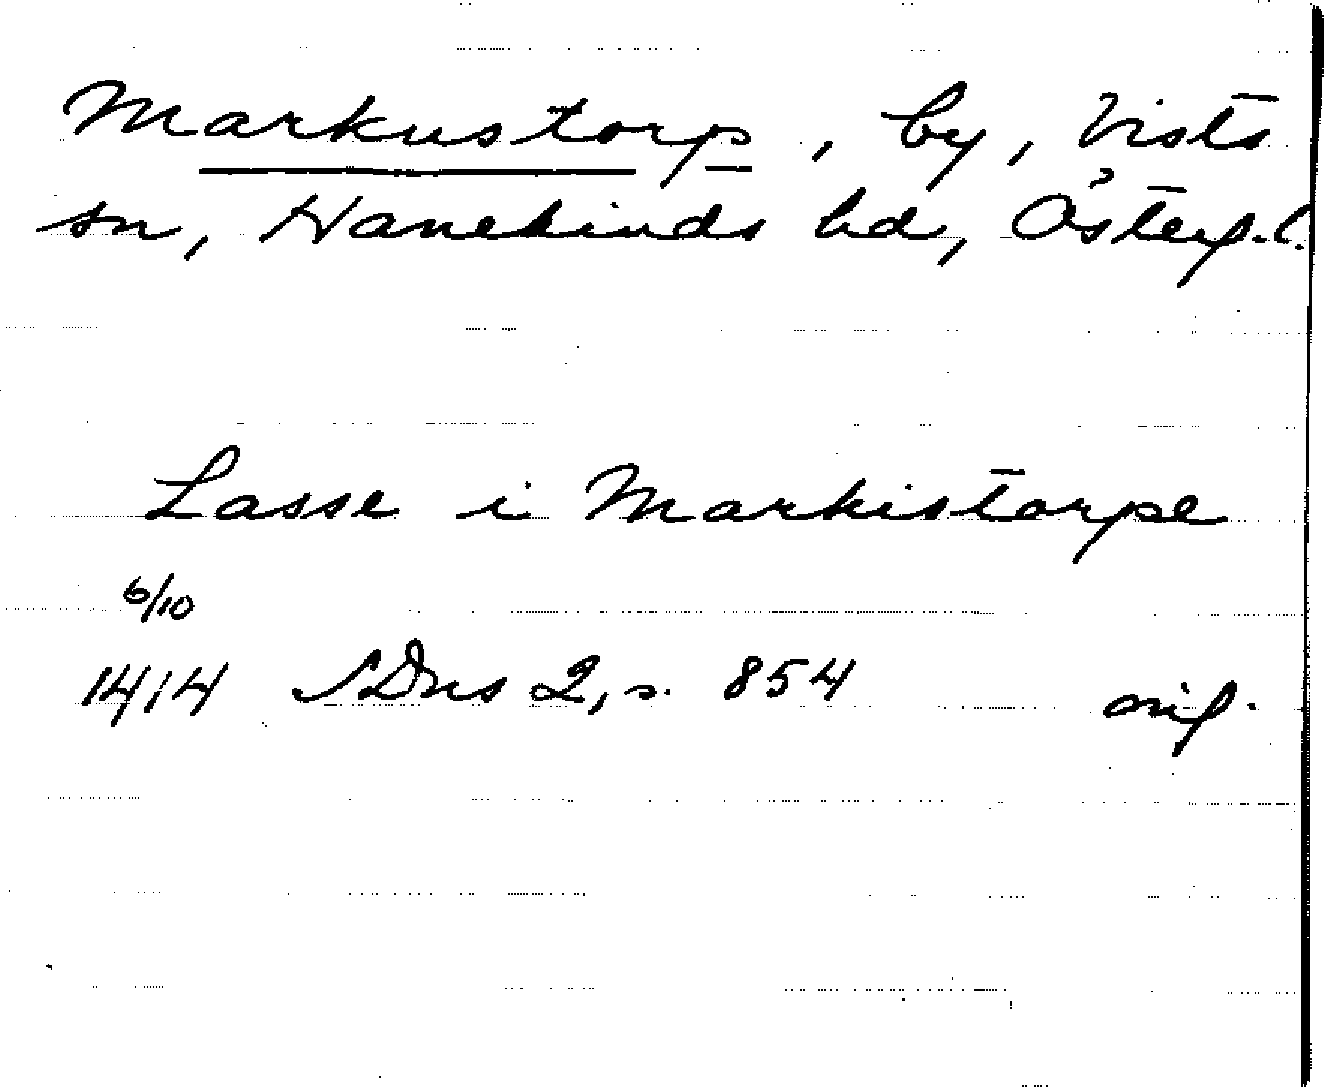 Markustorp, by, Vists
sn, Hanekinds hd, Österg.l.
Lasse i Markistorpe
6/10
1414 SDns 2, s. 854 orig.